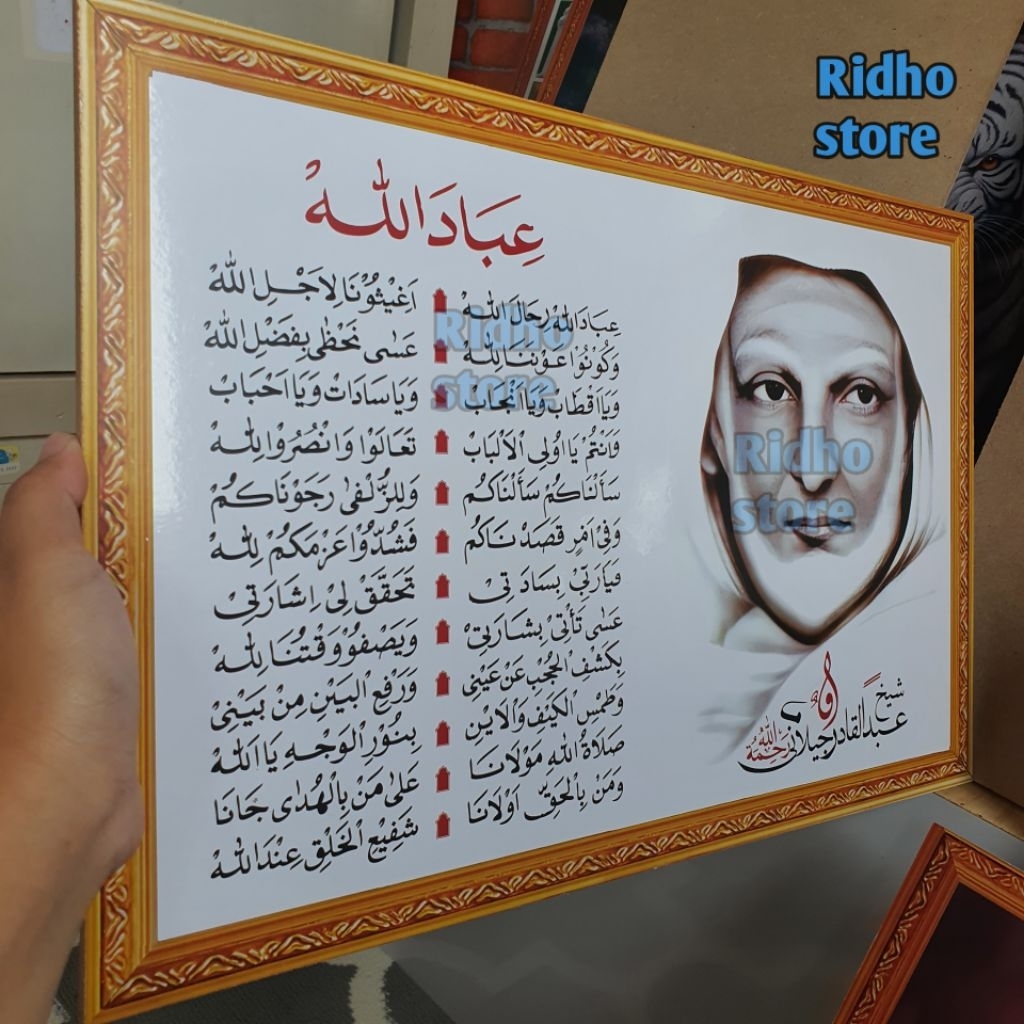 Ridho
store
عِبَادَ اللهْ
عِبَادَ اللهْ رِجَالَ اللهْ اَغِيْثُوْنَا لِاَجْلِ اللهْ
وَكُوْنُوْا عَوْنَنَا لِلّٰهْ عَسٰى نَحْظٰى بِفَضْلِ اللهْ
وَيَا اَقْطَابْ وَيَا اَنْجَابْ وَيَا سَادَاتْ وَيَا اَحْبَابْ
وَاَنْتُمْ يَا اُولِى الْاَلْبَابْ تَعَالَوْا وَانْصُرُوْا لِلّٰهْ
سَأَلْنَاكُمْ سَأَلْنَاكُمْ وَلِلزُّلْفٰى رَجَوْنَاكُمْ
وَفِيْ اَمْرٍ قَصَدْنَاكُمْ فَشُدُّوْا عَزْمَكُمْ لِلّٰهْ
فَيَارَبِّيْ بِسَادَتِيْ تَحَقَّقْ لِيْ اِشَارَتِيْ
عَسٰى تَأْتِيْ بِشَارَتِيْ وَيَصْفُوْ وَقْتُنَا لِلّٰهْ
بِكَشْفِ الْحُجْبِ عَنْ عَيْنِيْ وَرَفْعِ الْبَيْنِ مِنْ بَيْنِيْ
وَطَمْسِ الْكَيْفِ وَالْاَيْنِ بِنُوْرِ الْوَجْهِ يَا اَللهْ
صَلَاةُ اللهِ مَوْلَانَا عَلٰى مَنْ بِالْهُدٰى جَانَا
وَمَنْ بِالْحَقِّ اَوْلَانَا شَفِيْعِ الْخَلْقِ عِنْدَ اللهْ
Ridho
store
Ridho
store
شيخ
عبد القادر جيلاني
رَحِمَهُ الله